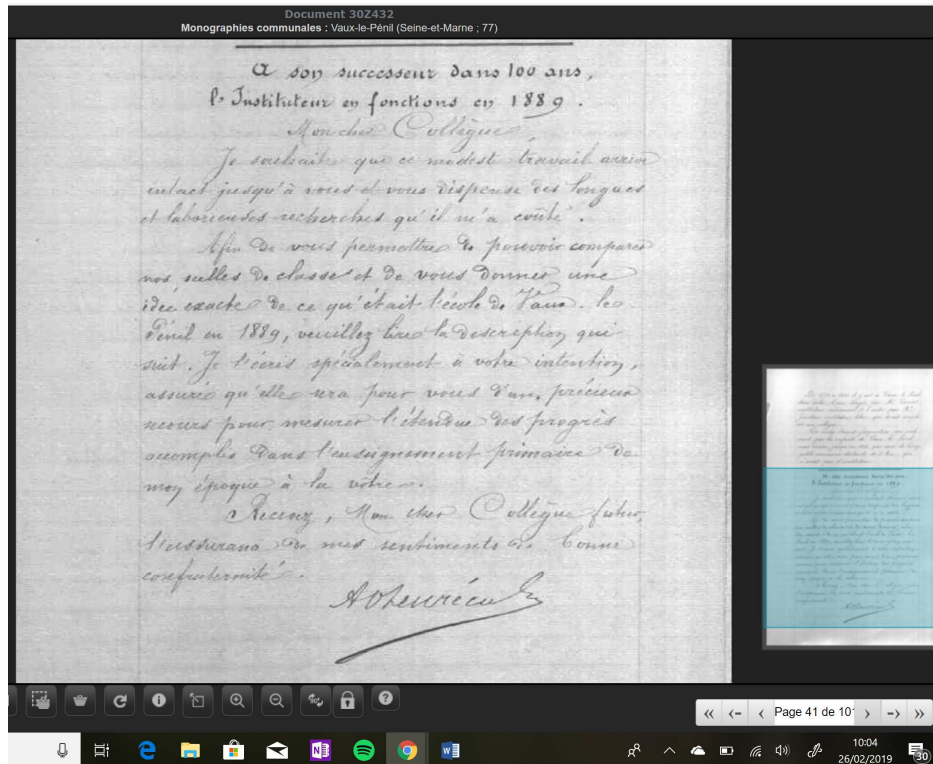 Document 30Z432
Monographies communales : Vaux-le-Pénil (Seine-et-Marne ; 77)
A son successeur dans 100 ans,
l'Instituteur en fonctions en 1889.
Mon cher Collègue,
Je souhaite que ce modeste travail arrive
intact jusqu'à vous et vous dispense des longues
et laborieuses recherches qu'il m'a coûté.
Afin de vous permettre de pouvoir comparer
nos salles de classe et de vous donner une
idée exacte de ce qu'était l'école de Vaux-le-
Pénil en 1889, veuillez lire la description qui
suit. Je l'écris spécialement à votre intention,
assuré qu'elle sera pour vous d'un précieux
secours pour mesurer l'étendue des progrès
accomplis dans l'enseignement primaire de
mon époque à la vôtre.
Recevez, Mon cher Collègue futur,
l'assurance de mes sentiments de bonne
confraternité.
Page 41 de 101
10:04
26/02/2019
30